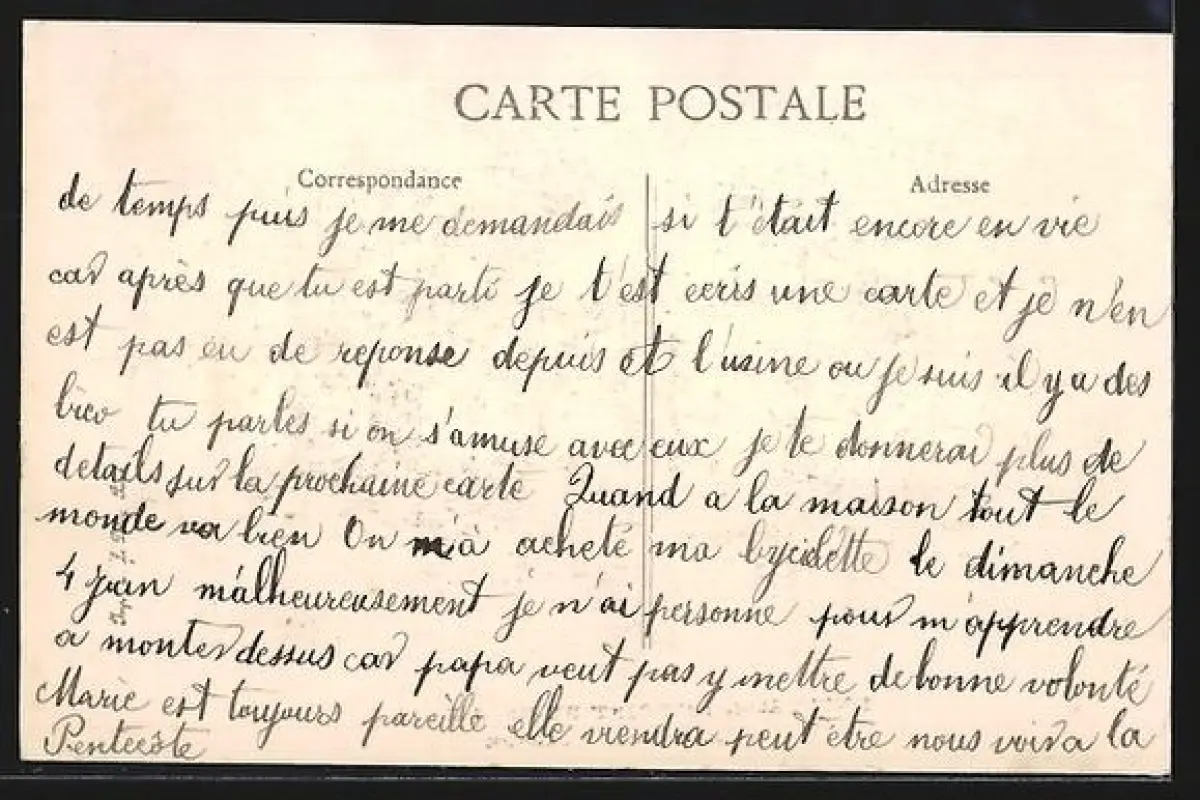 CARTE POSTALE
Correspondance
Adresse
de temps puis je me demandais si t'était encore en vie
car après que tu est parti je t'est ecris une carte et je n'en
est pas eu de reponse depuis et l'usine ou je suis il y a des
bico tu parles si on s'amuse avec eux je te donnerai plus de
details sur la prochaine carte Quand a la maison tout le
monde va bien On m'à acheté ma bycidette le dimanche
4 juin malheureusement je n'ai personne pour m'apprendre
a monter dessus car papa veut pas y mettre de bonne volonté
Marie est toujours pareille elle viendra peut être nous voir a la
Pentecôte